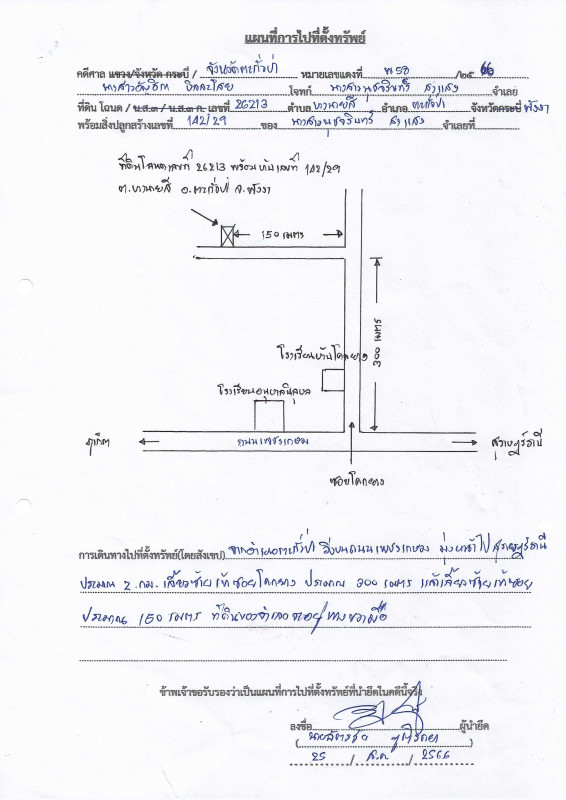 แผนที่การไปที่ตั้งทรัพย์
คดีศาล แขวง/จังหวัด กระบี่ / จังหวัดตะกั่วป่า หมายเลขแดงที่ พ58 /๒๕ 66
โจทก์ จำเลย
ที่ดิน โฉนด / น.ส.๓ / น.ส.๓ ก. เลขที่ 26213 ตำบล บางนายสี อำเภอ ตะกั่วป่า จังหวัดกระบี่ พังงา
พร้อมสิ่งปลูกสร้างเลขที่ 142/29 ของ จำเลยที่
ที่ดินโฉนดเลขที่ 26213 พร้อมบ้านเลขที่ 142/29
ต.บางนายสี อ.ตะกั่วป่า จ.พังงา
150 เมตร
300 เมตร
โรงเรียนบ้านโคกยาง
โรงเรียนอนุบาล
ภูเก็ต
ถนนเพชรเกษม
สุราษฎร์ธานี
ซอยโคกยาง
การเดินทางไปที่ตั้งทรัพย์(โดยสังเขป) จากอำเภอตะกั่วป่า วิ่งบนถนนเพชรเกษม มุ่งหน้าไปสุราษฎร์ธานี
ประมาณ 2 กม. เลี้ยวซ้ายเข้าซอยโคกยาง ประมาณ 300 เมตร แล้วเลี้ยวซ้ายเข้าซอย
ประมาณ 150 เมตร ที่ดินของจำเลยอยู่ทางขวามือ
ข้าพเจ้าขอรับรองว่าเป็นแผนที่การไปที่ตั้งทรัพย์ที่นำยึดในคดีนี้จริง
ลงชื่อ ผู้นำยึด
25 / ส.ค. / 2566